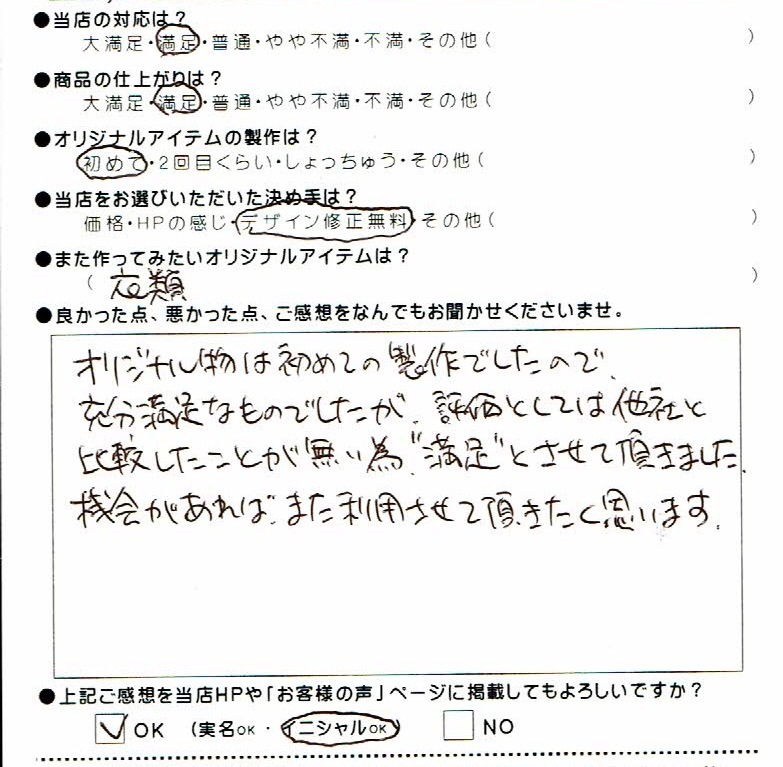 ●当店の対応は？
大満足・満足・普通・やや不満・不満・その他（　）
●商品の仕上がりは？
大満足・満足・普通・やや不満・不満・その他（　）
●オリジナルアイテムの製作は？
初めて・2回目くらい・しょっちゅう・その他（　）
●当店をお選びいただいた決め手は？
価格・HPの感じ・デザイン修正無料・その他（　）
●また作ってみたいオリジナルアイテムは？
（ 衣類 ）
●良かった点、悪かった点、ご感想をなんでもお聞かせくださいませ。
オリジナル物は初めての製作でしたので、
充分満足なものでしたが、評価としては他社と
比較したことが無い為、"満足"とさせて頂きました。
機会があれば、また利用させて頂きたく思います。
●上記ご感想を当店HPや「お客様の声」ページに掲載してもよろしいですか？
✓OK （実名OK・イニシャルOK） □NO